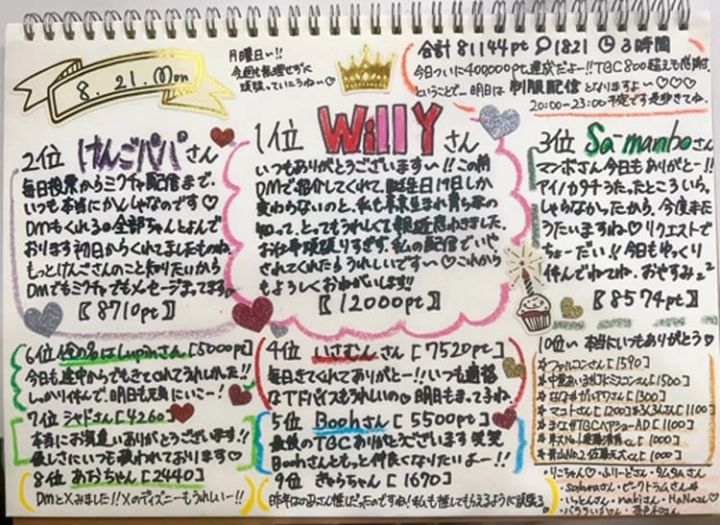 8.21.Mon
月曜日ー!!
今週も無理せずに
頑張っていこうねー♡
合計81144pt 1821 3時間
今日ついに400,000pt達成だよー!! TBC800超えも感謝
ということで… 明日は 制服配信 となりますよー♡♡♡
20:00-23:00予定です是非きてね。
1位 Willyさん
いつもありがとうございますー!! この前
DMで紹介してくれて、誕生日19日しか
変わらないのと、私も
知って、とってもうれしくて親近感わきました。
お仕事頑張りすぎず、私の配信でいや
されてくれたらうれしいですー♡これから
もよろしくおねがいします!!
〖12000pt〗
2位 けんごパパさん
毎日投票からミクチャ配信まで、
いつも本当にかんしゃなのです♡
DMもくれるの全部ちゃんとよんで
おります初日からくれてましたものね。
もっとけんごさんのこと知りたいから
DMでもミクチャでもメッセージまってます
〖8710pt〗
3位 Sa-manboさん
マンボさん今日もありがとー!!
アイノカタチうたったところいらっ
しゃらなかったから、今度また
うたいますね♡リクエストで
ちょーだい!! 今日もゆっくり
休んでねてね。おやすみ
〖8574pt〗
4位 いさむんさん [7520pt]
毎日きてくれてありがとー!! いつも適格
なアドバイスもうれしいの 明日もまってるね
5位 Boohさん [5500pt]
最後のTBCありがとうございます 笑笑
Boohさんともっと仲良くなりたいよー!!
6位 俺の名はLupinさん [5000pt]
今日も途中からでもきてくれてうれしかった!!
しっかり休んで、明日も元気にいこー!
7位 シャドさん [4260]
本当にお気遣いありがとうございます!!
優しさにいつも救われております♡
8位 あおちゃん [2440]
DMとXみました!! Xのディズニーもうれしいー!!
9位 きゃらちゃん [1670]
10位〜 本当にいつもありがとう♡
ファルコンさん [1590]
[1500]
[1300]
マコトさん [1200]
[1100]
[1100]
[1000]
[1000]
・りこちゃん♡・ふりーどさん・タムタムさん
・sakuraさん・ビークトラムさん
・いっとんさん・nakiさん・HaNaさん♡